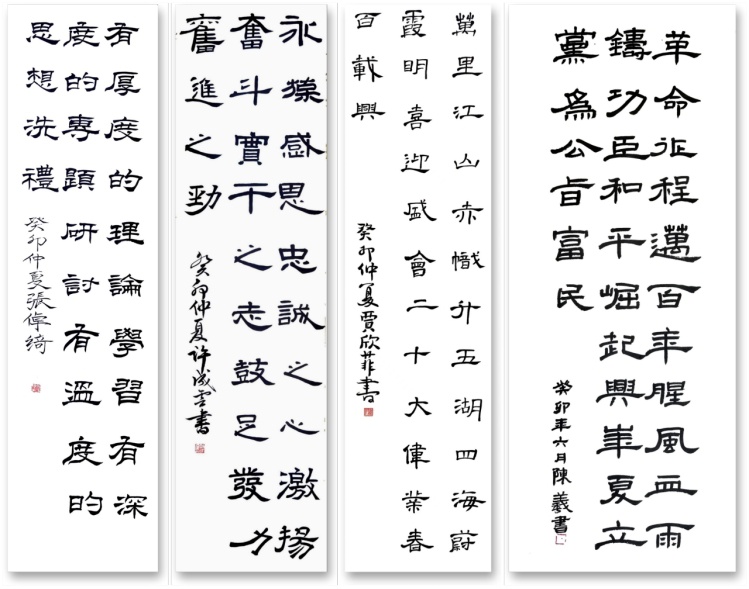 有厚度的理論學習有深
度的專題研討有溫度的
思想洗禮
癸卯仲夏張倬綺
永感恩忠誠之心激揚
奮斗實干之志鼓足發力
奮進之勁
癸卯仲夏许成雲書
萬里江山赤幟升五湖四海蔚
霞明喜迎盛會二十大偉業春
百載興
癸卯仲夏賈欣菲書
革命征程邁百年腥風血雨
鑄功臣和平崛起興華夏立
黨為公旨富民
癸卯年六月陳羲書